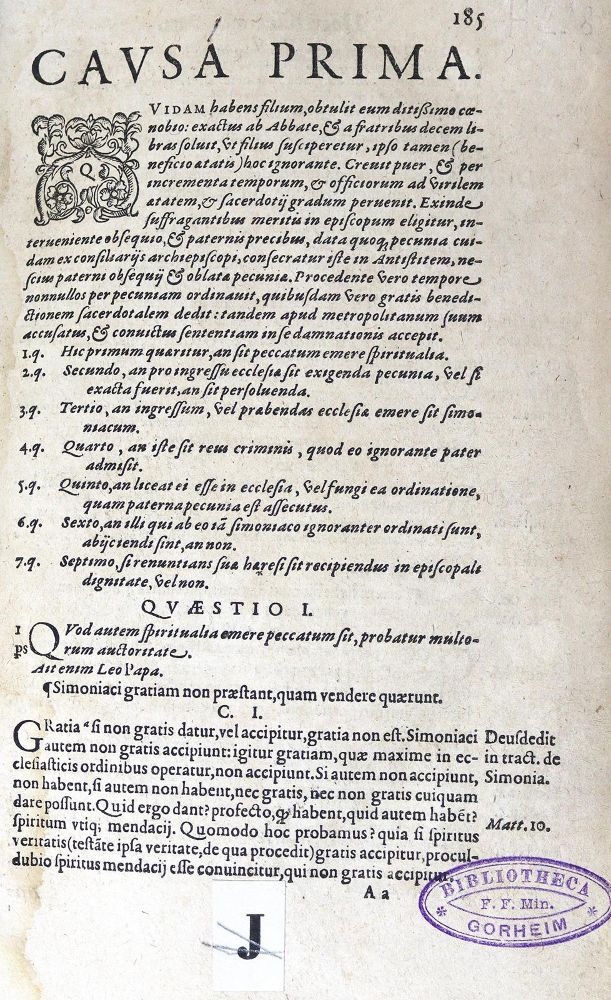 185
CAVSA PRIMA.
QVIDAM habens filium, obtulit eum ditißimo cœ-
nobio: exactus ab Abbate, & a fratribus decem li-
bras soluit, vt filius susciperetur, ipso tamen (be-
neficio ætatis) hoc ignorante. Creuit puer, & per
incrementa temporum, & officiorum ad virilem
ætatem, & sacerdotij gradum peruenit. Exinde
suffragantibus meritis in episcopum eligitur, in-
terueniente obsequio, & paternis precibus, data quoq; pecunia cui-
dam ex consiliarijs archiepiscopi, consecratur iste in Antistitem, ne-
scius paterni obsequij & oblatæ pecuniæ. Procedente vero tempore
nonnullos per pecuniam ordinauit, quibusdam vero gratis benedi-
ctionem sacerdotalem dedit: tandem apud metropolitanum suum
accusatus, & conuictus sententiam in se damnationis accepit.
1.q. Hic primum quæritur, an sit peccatum emere spiritualia.
2.q. Secundo, an pro ingressu ecclesiæ sit exigenda pecunia, vel si
exacta fuerit, an sit persoluenda.
3.q. Tertio, an ingressum, vel præbendas ecclesiæ emere sit simo-
niacum.
4.q. Quarto, an iste sit reus criminis, quod eo ignorante pater
admisit.
5.q. Quinto, an liceat ei esse in ecclesia, vel fungi ea ordinatione,
quam paterna pecunia est assecutus.
6.q. Sexto, an illi qui ab eo iã simoniaco ignoranter ordinati sunt,
abijciendi sint, an non.
7.q. Septimo, si renuntians suæ hæresi sit recipiendus in episcopali
dignitate, vel non.
QVÆSTIO I.
1
ps
QVod autem spiritualia emere peccatum sit, probatur multo-
rum auctoritate.
Ait enim Leo Papa.
¶Simoniaci gratiam non præstant, quam vendere quærunt.
C. I.
GRatia a si non gratis datur, vel accipitur, gratia non est. Simoniaci
autem non gratis accipiunt: igitur gratiam, quæ maxime in ec-
clesiasticis ordinibus operatur, non accipiunt. Si autem non accipiunt,
non habent, si autem non habent, nec gratis, nec non gratis cuiquam
dare possunt. Quid ergo dant? profecto, ꝙ habent, quid autem habẽt?
spiritum vtiq; mendacij. Quomodo hoc probamus? quia si spiritus
veritatis (testãte ipsa veritate, de qua procedit) gratis accipitur, procul-
dubio spiritus mendacij esse conuincitur, qui non gratis accipitur.
Deusdedit
in tract. de
Simonia.
Matt. 10.
A a
BIBLIOTHECA
F. F. Min.
GORHEIM
J